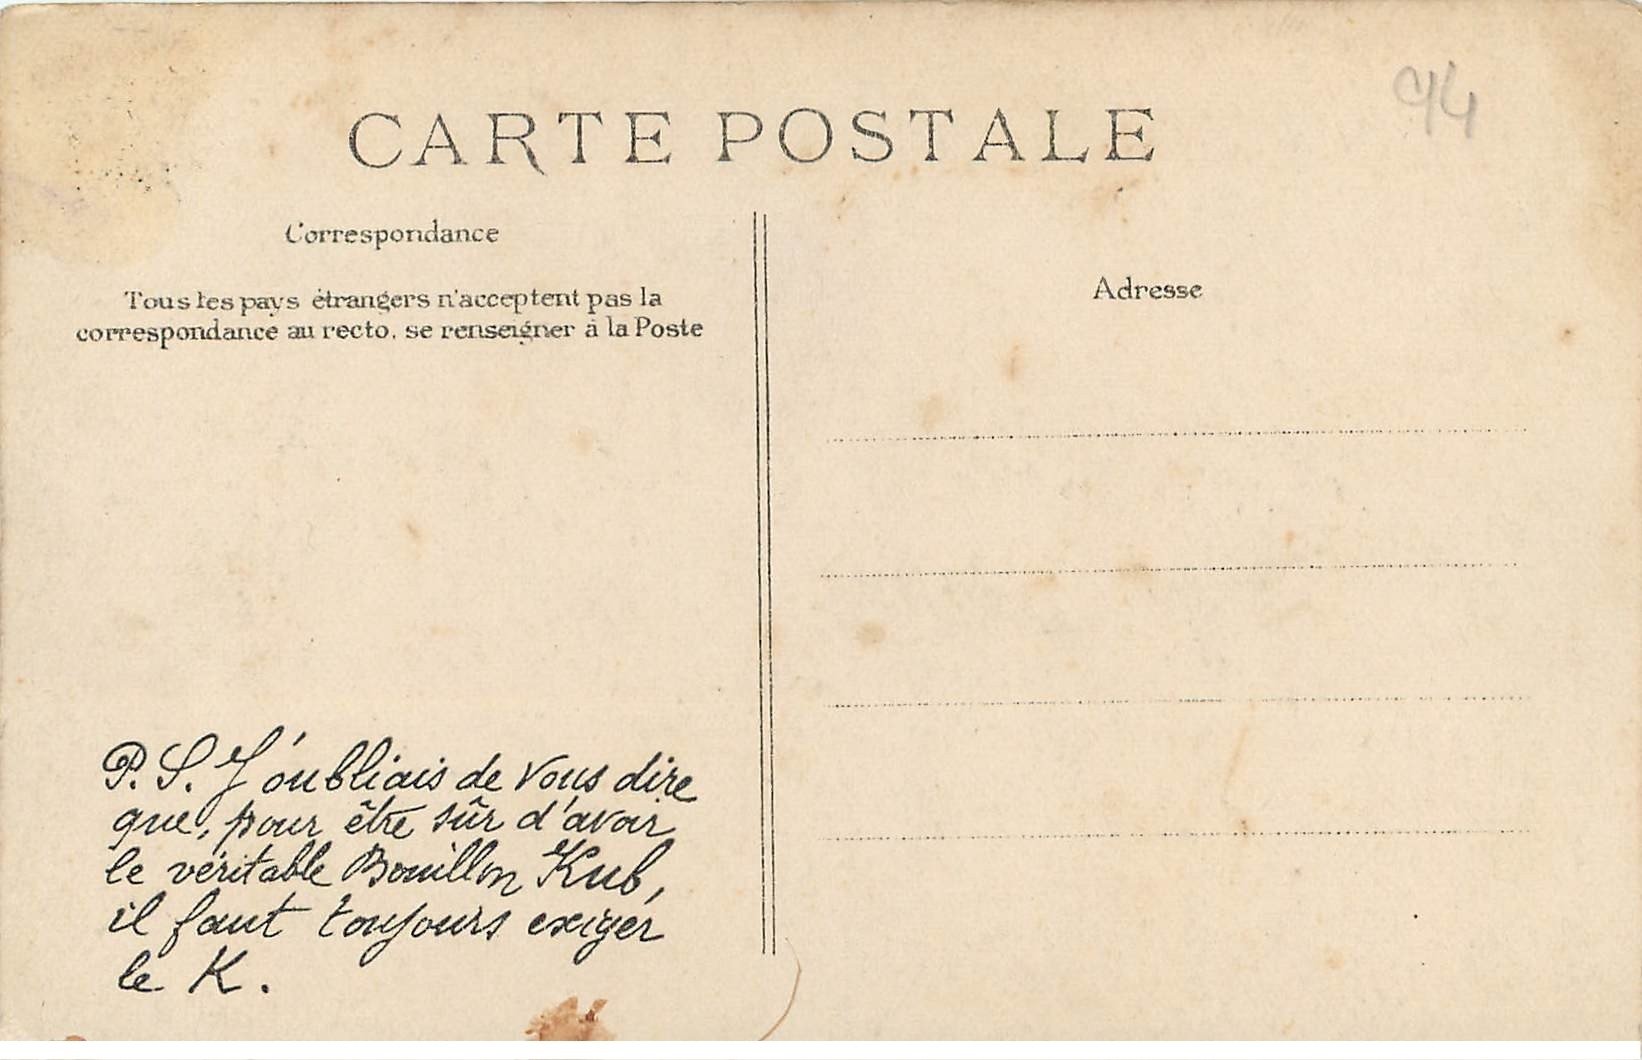 94
CARTE POSTALE
Correspondance
Tous les pays étrangers n'acceptent pas la
correspondance au recto, se renseigner à la Poste
P.S. J'oubliais de vous dire
que, pour être sûr d'avoir
le véritable Bouillon Kub,
il faut toujours exiger
le K.
Adresse